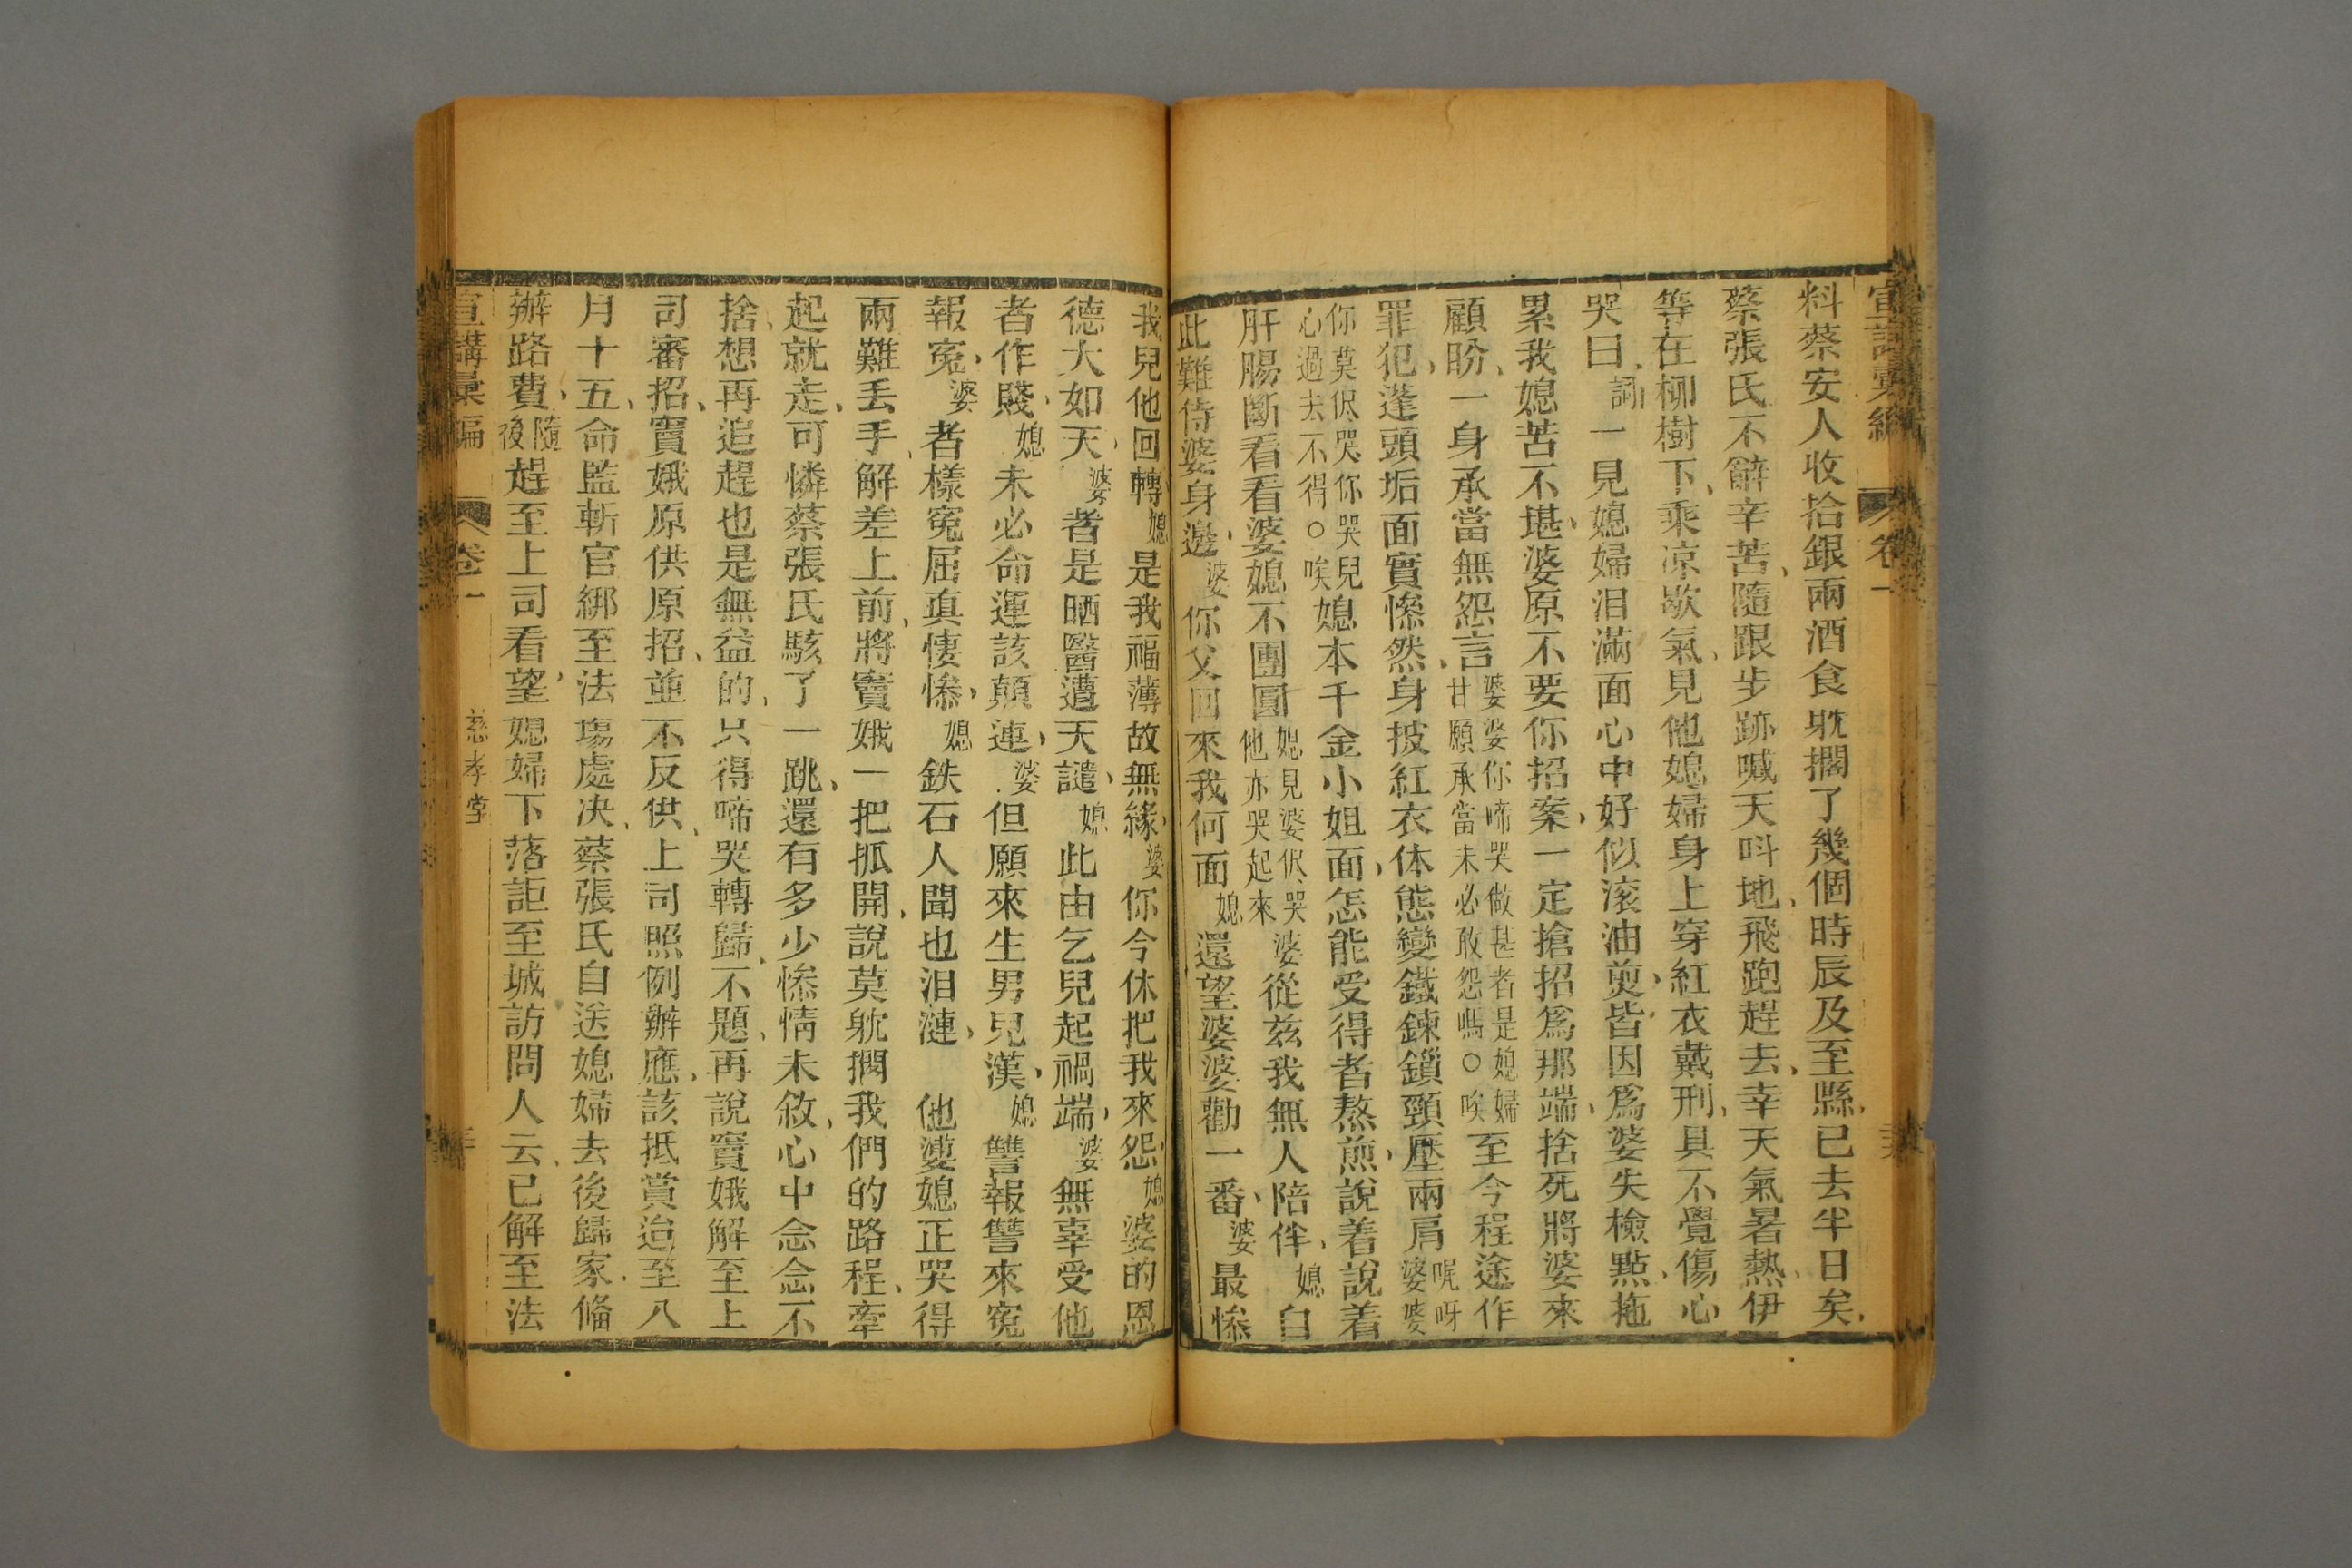 宣講彙編 卷一
料蔡安人收拾銀兩酒食躭擱了幾個時辰及至縣已去半日矣
蔡張氏不辭辛苦隨跟步跡喊天呌地飛跑趕去幸天氣暑熱伊
等在柳樹下乘凉歇氣見他媳婦身上穿紅衣戴刑具不覺傷心
哭曰詞一見媳婦泪滿面心中好似滾油煎皆因爲婆失檢點拖
累我媳苦不堪婆原不要你招案一定搶招爲那端捨死將婆來
顧盼一身承當無怨言婆婆你啼哭做甚者是媳婦甘願承當未必敢怨嗎○唉至今程途作
罪犯蓬頭垢面實慘然身披紅衣体態變鐵鍊鎖頸壓兩肩呢呀婆婆
你莫伤哭你哭兒心過去不得○唉媳本千金小姐面怎能受得者熬煎說着說着
肝腸斷看看婆媳不團圓媳見婆伤哭他亦哭起來婆從茲我無人陪伴媳自
此難侍婆身邊婆你父回來我何面媳還望婆婆勸一番婆最慘
我兒他回轉媳是我福薄故無緣婆你今休把我來怨媳婆的恩
德大如天婆者是晒醫遭天譴媳此由乞兒起禍端婆無辜受他
者作賤媳未必命運該顛連婆但願來生男兒漢媳讐報讐來寃
報寃婆者樣寃屈眞悽慘媳鉄石人聞也泪漣 他婆媳正哭得
兩難丢手解差上前將竇娥一把抓開說莫躭擱我們的路程牽
起就走可憐蔡張氏駭了一跳還有多少慘情未敘心中念念不
捨想再追趕也是無益的只得啼哭轉歸不題再說竇娥解至上
司審招竇娥原供原招並不反供上司照例辦應該抵賞迨至八
月十五命監斬官綁至法場處决蔡張氏自送媳婦去後歸家俻
辦路費隨後趕至上司看望媳婦下落詎至城訪問人云已解至法
宣講彙編 卷一 慈孝堂